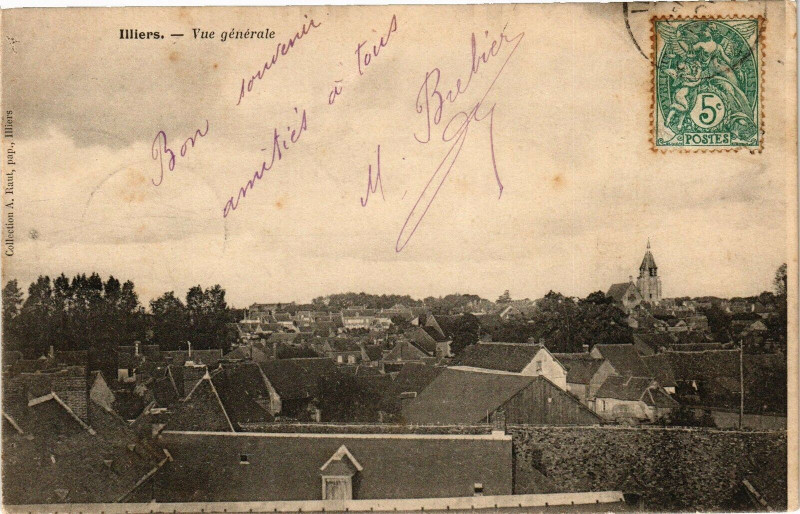 Illiers. — Vue générale
Bon souvenir
amitiés à tous
M. Brebier
5c
POSTES
Collection A. Raut, pap., Illiers